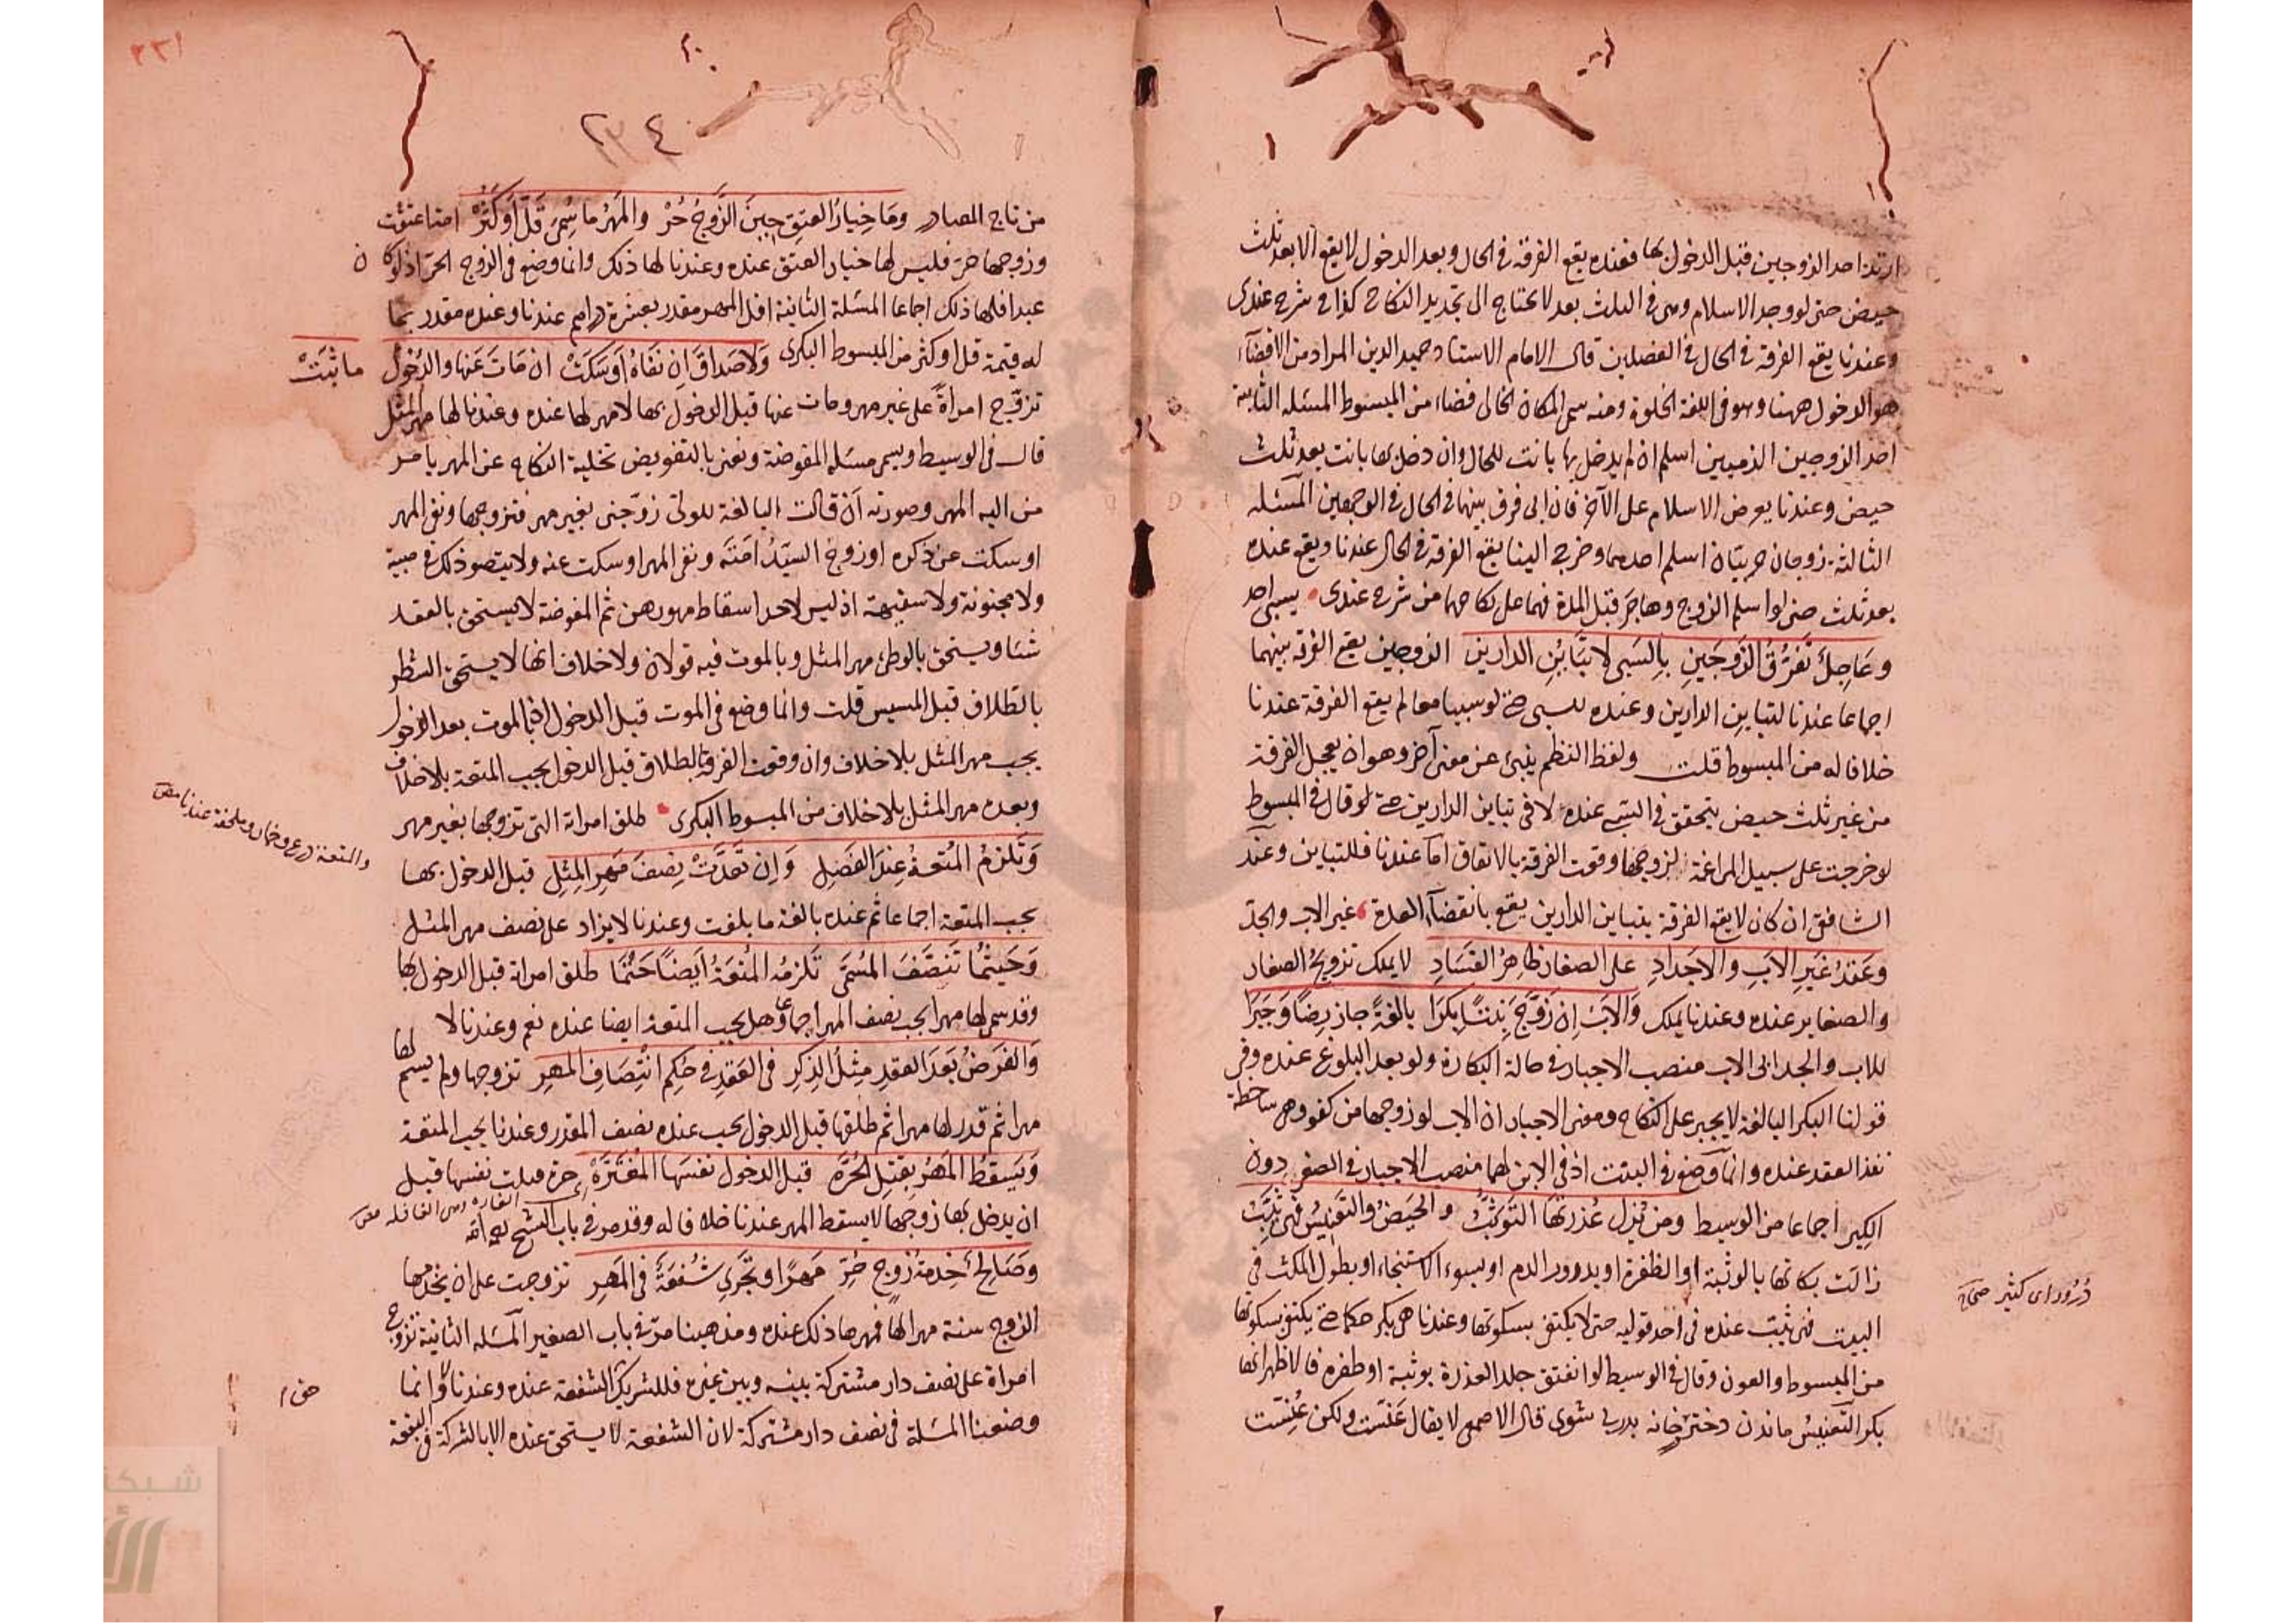 ارتد احد الزوجين قبل الدخول بها فعنده يقع الفرقة في الحال وبعد الدخول لا يقع الا بعد ثلث
حيض حتى لو وجد الاسلام وهي في الثلث بعد لا يحتاج الى تجديد النكاح كذا في شرح عندي
وعندنا يقع الفرقة في الحال في الفصلين قال الامام الاستاد حميد الدين المراد من الافضآء
هو الدخول ههنا وهو في اللغة الخلوة ومنه سمي المكان الخالي فضاء من المبسوط المسئلة الثانية
احد الزوجين الذميين اسلم ان لم يدخل بها بانت للحال وان دخل بها بانت بعد ثلث
حيض وعندنا يعرض الاسلام على الآخر فان ابى فرق بينهما في الحال في الوجهين المسئلة
الثالثة زوجان حربيان اسلم احدهما وخرج الينا يقع الفرقة في الحال عندنا ويقع عنده
بعد ثلث حتى لو اسلم الزوج وهاجر قبل المدة فهما على نكاحهما من شرح عندي يسبى احد
وَعَاجِلٌ تَفَرُّقُ الزَوجَينِ بِالسَبي لا تَبَايُنِ الدارين الزوجين يقع الفرقة بينهما
اجماعا عندنا لتباين الدارين وعنده للسبي حتى لو سبيا معا لم يقع الفرقة عندنا
خلافا له من المبسوط قلت ولفظ النظم ينبئ عن معنى آخر وهو ان يعجل الفرقة
من غير ثلث حيض يتحقق في السبي عنده لا في تباين الدارين حتى لو قال في المبسوط
لو خرجت على سبيل المراغمة لزوجها وقعت الفرقة بالاتفاق اما عندنا فللتباين وعند
الشافعي ان كان لا يقع الفرقة بتباين الدارين يقع بانقضآء العدة غير الاب والجد
وَعَقدُ غَيرِ الاَبِ والاجدادِ على الصغار ظاهِرُ الفَسَادِ لا يملك تزويج الصغار
والصغاير عنده وعندنا يملك وَالاَبُ اِن زَوَّجَ بِنتًا بِكرًا بالغةً جاز رِضًا وَجَبرًا
للاب والجد ابى الاب منصب الاجبار في حالة البكارة ولو بعد البلوغ عنده وفي
قولنا البكر البالغة لا يجبر على النكاح ومعنى الاجبار ان الاب لو زوجها من كفو وهي ساخطة
نفذ العقد عنده وانما وضع في البنت اذ في الابن لهما منصب الاجبار في الصغر دون
الكبر اجماعا من الوسيط ومن يُزِل عُذرَتَها التَوَثُّبُ والحَيضُ والتَعنِيسُ فهي ثيّبُ
زالت بكارتها بالوثبة او الطفرة او بدرور الدم او بسوء الاستنجاء او بطول المكث في
البيت فهي ثيب عنده في احد قوليه حتى لا يكتفى بسكوتها وعندنا هي بكر حكما حتى يكتفى بسكوتها
من المبسوط والعون وقال في الوسيط لو انفتق جلد العذرة بوثبة او طفرة فالاظهر انها
بكر التعنيس ماندن دختر خانه بدر بى شوى قال الاصمعي لا يقال عَنَسَت ولكن عُنِسَت
دُرُور اى كثير صحاح
٢٣١
٢٣٤
من تاج المصادر وَمَا خِيارُ العِتقِ حِينَ الزَّوجُ حُرْ والمَهرُ ما سُمِيَ قَلَّ أوكَثُرْ امة اعتقت
وزوجها حر فليس لها خيار العتق عنده وعندنا لها ذلك وانما وضع في الزوج الحر اذ لو كان
عبدا فلها ذلك اجماعا المسئلة الثانية اقل المهر مقدر بعشرة دراهم عندنا وعنده مقدر بما
له قيمة قل او كثر من المبسوط البكري وَلاصَداقَ اِن نَفَاهُ اَو سَكَتْ ان مَاتَ عَنها والدُخُول ما ثَبَتْ
تزوّج امراةً على غير مهر ومات عنها قبل الدخول بها لا مهر لها عنده وعندنا لها مهر المثل
قال في الوسيط ويسمى مسئلة المفوضة ونعني بالتفويض تخلية النكاح عن المهر بامر
من اليه المهر وصورته أن قالت البالغة للولي زوّجني بغير مهر فتزوجها ونفى المهر
او سكت عن ذكره او زوج السيّدُ امَتَه ونفى المهر او سكت عنه ولا يتصور ذلك في صبية
ولا مجنونة ولا سفيهة اذ ليس لاحد اسقاط مهورهن ثم المفوضة لا يستحق بالعقد
شئا ويستحق بالوطئ مهر المثل وبالموت فيه قولان ولا خلاف انها لا يستحق الشطر
بالطلاق قبل المسيس قلت وانما وضع في الموت قبل الدخول اذ بالموت بعد الدخول
يجب مهر المثل بلا خلاف وان وقعت الفرقة بالطلاق قبل الدخول يجب المتعة بلا خلاف
وبعده مهر المثل بلا خلاف من المبسوط البكري طلق امراته التي تزوجها بغير مهر
والمتعة درع وخمار وملحفة عندنا
وَتَلزمُ المُتعةُ عِندَ الفَصلِ وَاِن تَعَدَّتْ نِصفَ مَهرِ المِثلِ قبل الدخول بها
يجب المتعة اجماعا ثم عنده بالغة ما بلغت وعندنا لا يزاد على نصف مهر المثل
وَحَيثُمَا تَنَصَّفَ المُسَمَّى تَلزمُه المُتعَةُ اَيضًا حَتْمًا طلق امراته قبل الدخول بها
وقد سمى لها مهرا يجب نصف المهر اجماعا وهل يجب المتعة ايضا عنده نعم وعندنا لا
وَالفَرضُ بَعدَ العَقدِ مِثلُ الذِكرِ في العَقدِ في حُكمِ انْتِصَافِ المَهرِ تزوجها ولم يسم لها
مهرا ثم قدر لها مهرا ثم طلقها قبل الدخول يجب عنده نصف المقدر وعندنا يجب المتعة
وَيَسقُطُ المَهرُ بِقَتلِ الحُرَّه قبل الدخول نفسَها المُغتَرَّهْ حرة قتلت نفسها قبل
ان يدخل بها زوجها لا يسقط المهر عندنا خلافا له وقد مر في باب
وَصَالِحٌ خِدمةُ زوجٍ حُرِّ مَهرًا وتَجري شُفعَةٌ في المَهرِ تزوجت على ان يخدمها
الزوج سنة مهرا لها فمهرها ذلك عنده ومذهبنا مرّ في باب الصغير المسئلة الثانية تزوج
امراة على نصف دار مشتركة بينه وبين غيره فللشريك الشفعة عنده وعندنا لا وانما
وضعنا المسئلة في نصف دار مشتركة لان الشفعة لا يستحق عنده الا بالشركة في البقعة
شبكة